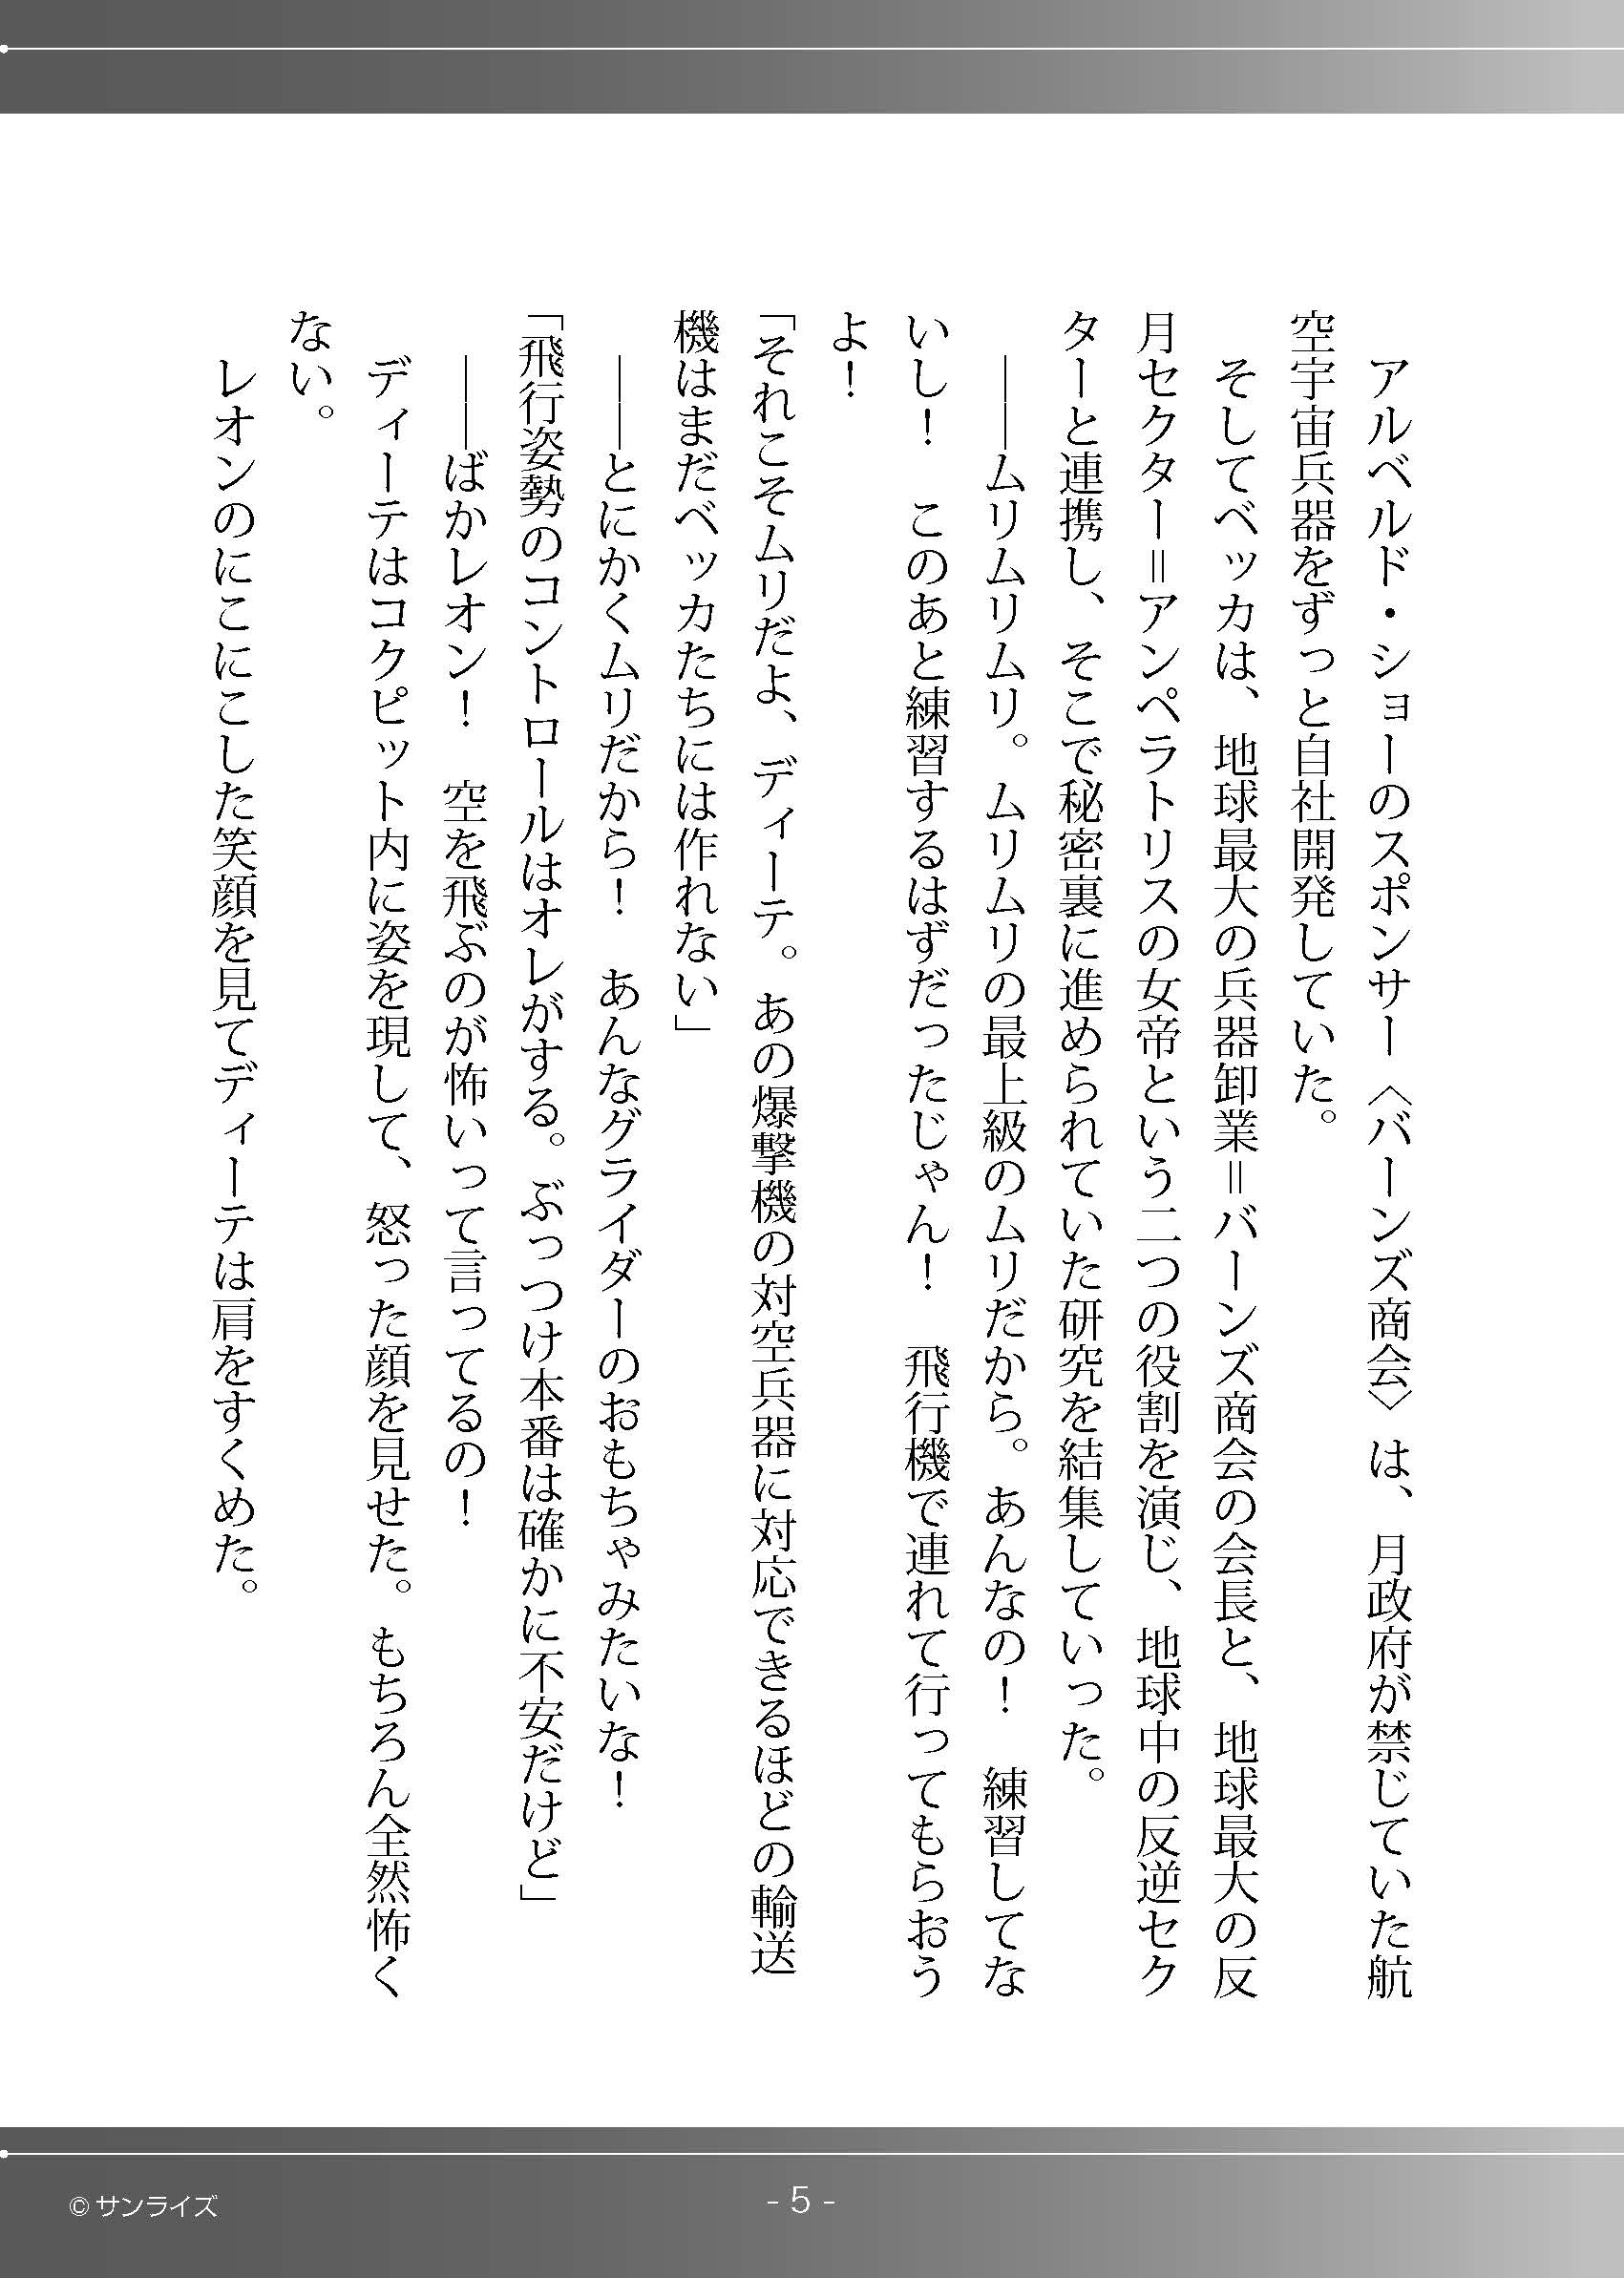 アルベルド・ショーのスポンサー〈バーンズ商会〉は、月政府が禁じていた航
空宇宙兵器をずっと自社開発していた。
　そしてベッカは、地球最大の兵器卸業＝バーンズ商会の会長と、地球最大の反
月セクター＝アンペラトリスの女帝という二つの役割を演じ、地球中の反逆セク
ターと連携し、そこで秘密裏に進められていた研究を結集していった。
　――ムリムリムリ。ムリムリの最上級のムリだから。あんなの！　練習してな
いし！　このあと練習するはずだったじゃん！　飛行機で連れて行ってもらおう
よ！
「それこそムリだよ、ディーテ。あの爆撃機の対空兵器に対応できるほどの輸送
機はまだベッカたちには作れない」
　――とにかくムリだから！　あんなグライダーのおもちゃみたいな！
「飛行姿勢のコントロールはオレがする。ぶっつけ本番は確かに不安だけど」
　――ばかレオン！　空を飛ぶのが怖いって言ってるの！
　ディーテはコクピット内に姿を現して、怒った顔を見せた。もちろん全然怖く
ない。
　レオンのにこにこした笑顔を見てディーテは肩をすくめた。
© サンライズ
- 5 -